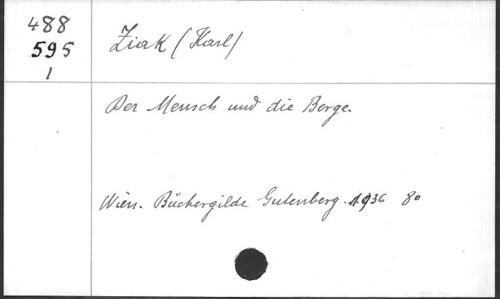 488
595
1
Ziak (Karl)
Der Mensch und die Berge.
Wien. Büchergilde Gutenberg. 1936 8o